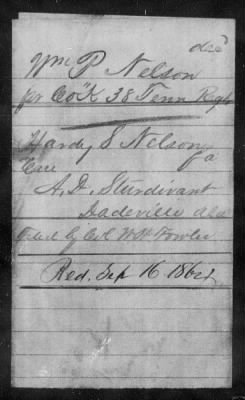 decd
Wm P Nelson
pr Co "K 38 Tenn Regt
Hardy S Nelson fa
Care
A. D. Sturdivant
Dadeville ala
by Col W H Fowler
Red. Sep 16 1862